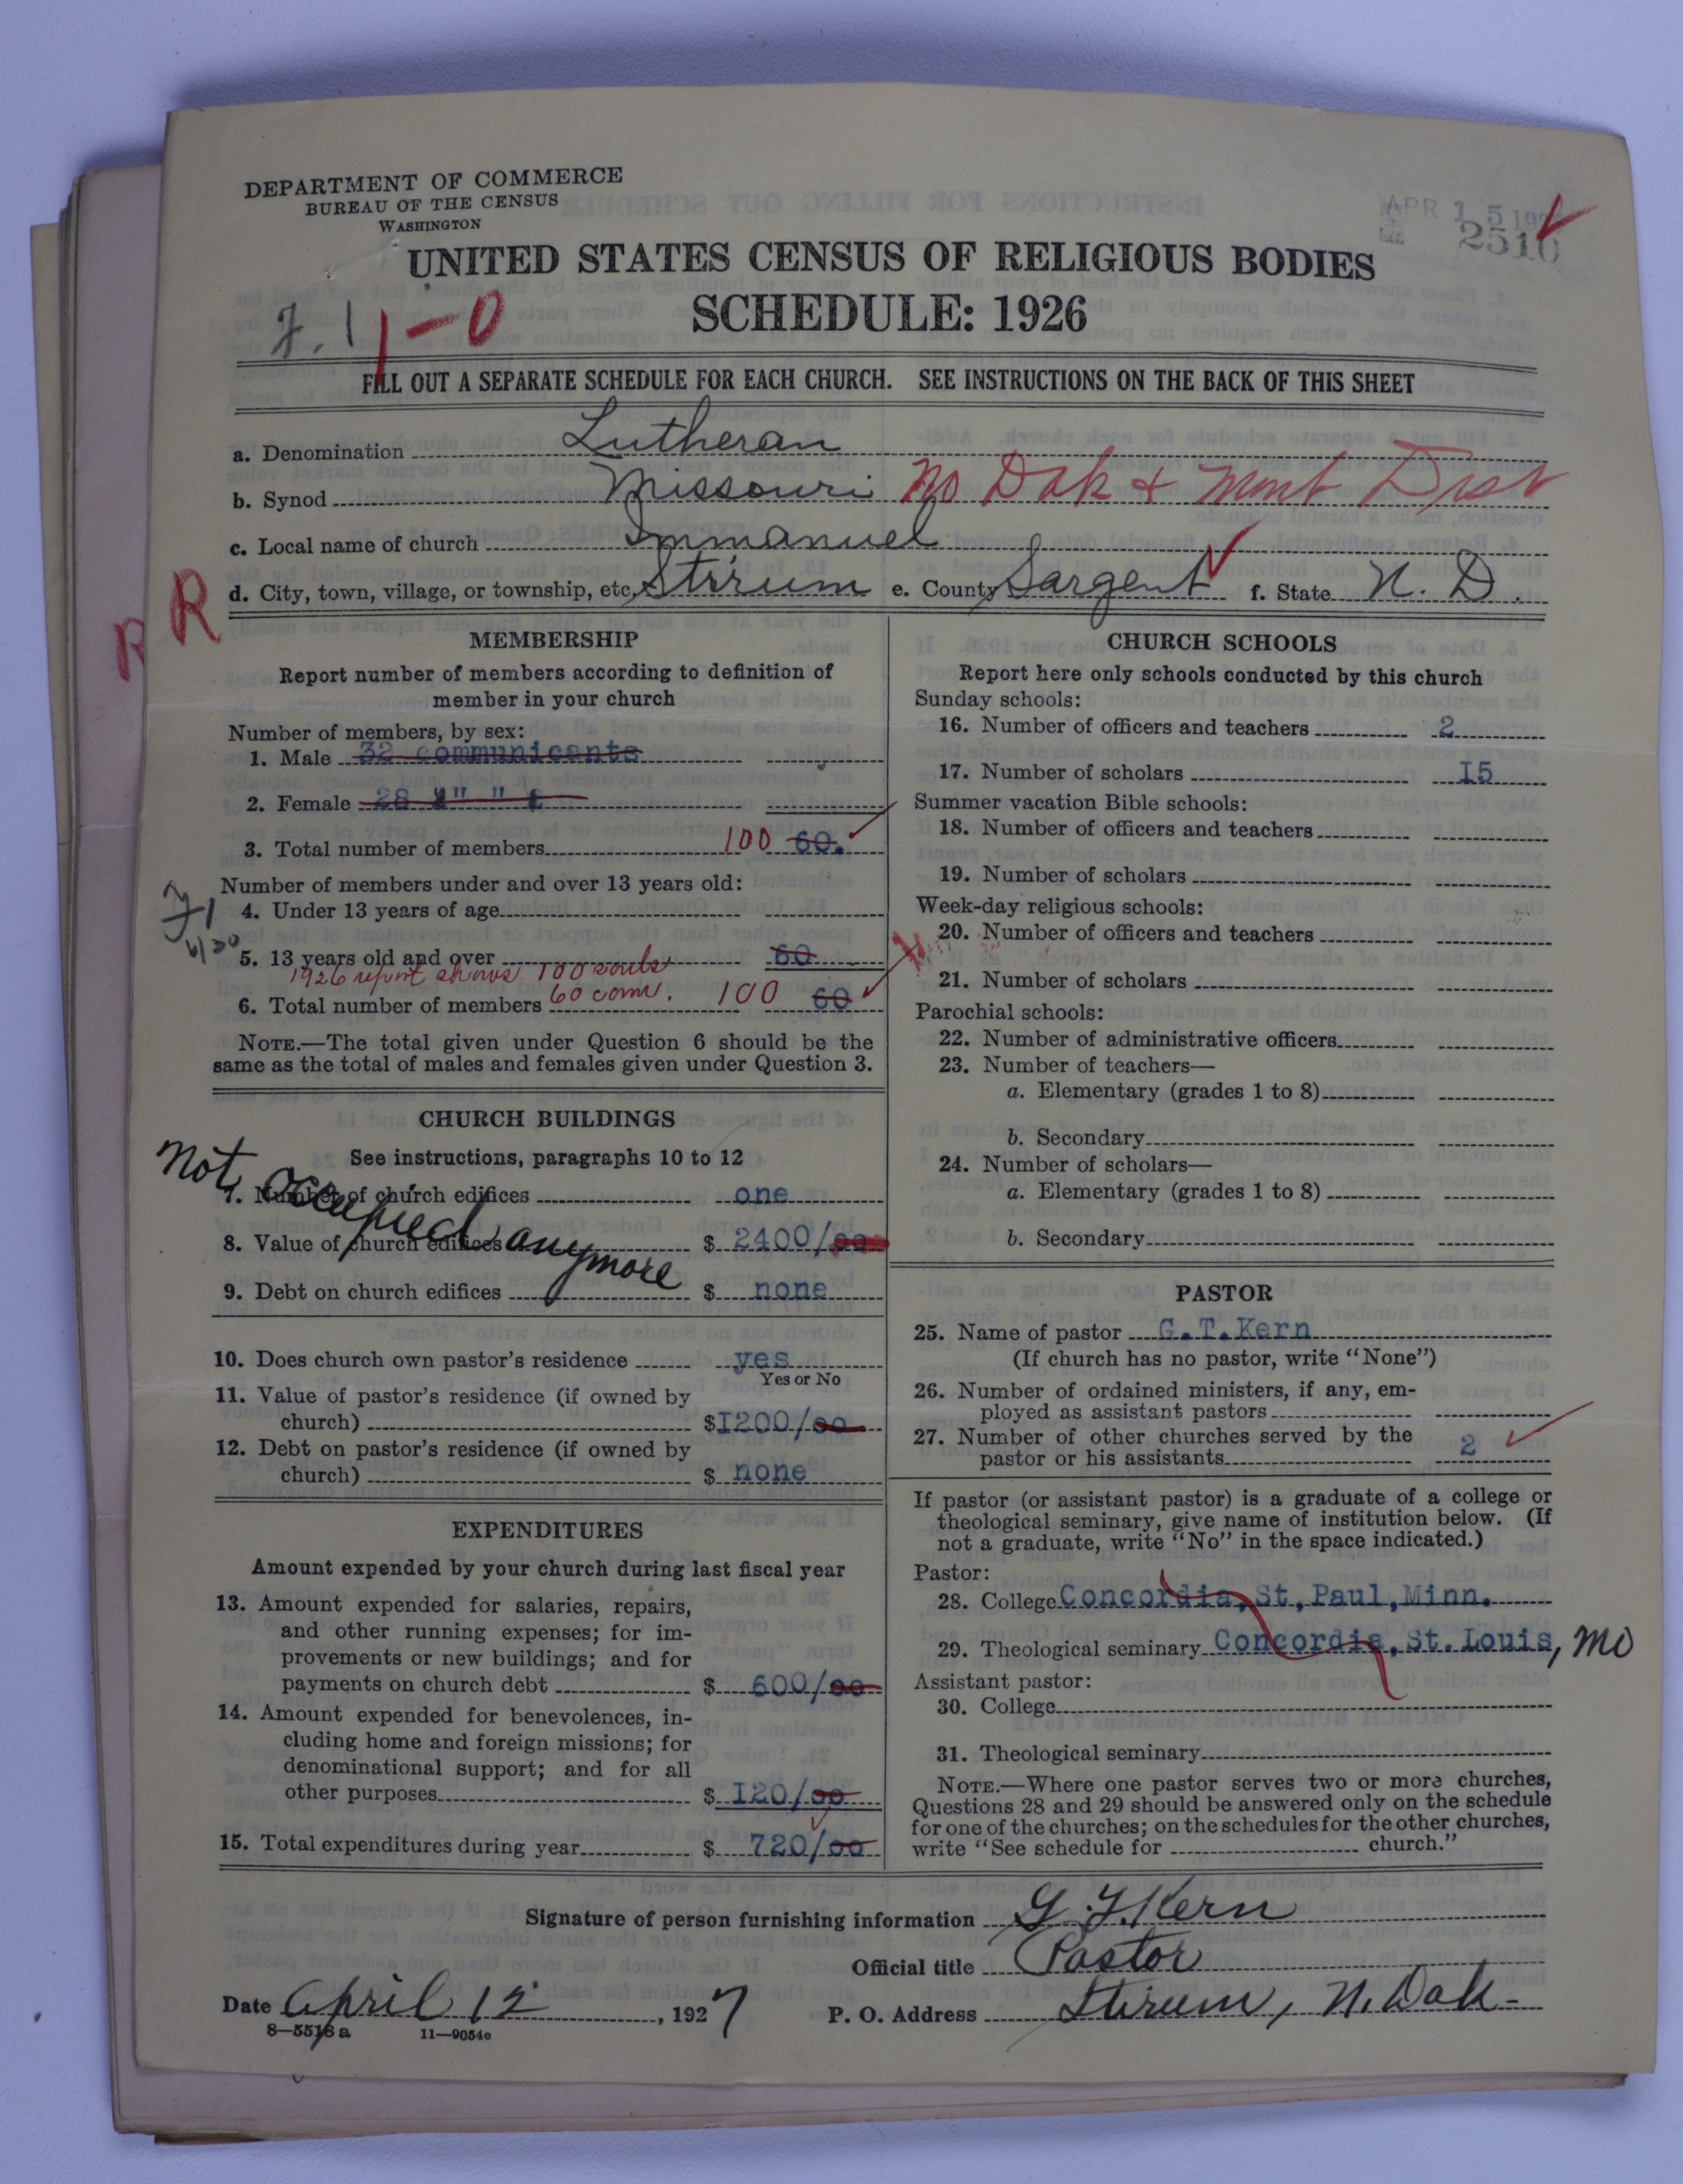 DEPARTMENT OF COMMERCE
BUREAU OF THE CENSUS
WASHINGTON
APR 15 192
2510
UNITED STATES CENSUS OF RELIGIOUS BODIES
SCHEDULE: 1926
1-0
FILL OUT A SEPARATE SCHEDULE FOR EACH CHURCH. SEE INSTRUCTIONS ON THE BACK OF THIS SHEET
a. Denomination Lutheran
b. Synod Missouri No Dak & Mont Dist
c. Local name of church Immanuel
R R d. City, town, village, or township, etc. Stirum e. County Sargent f. State N. D.
MEMBERSHIP
Report number of members according to definition of
member in your church
Number of members, by sex:
1. Male 32 communicants
2. Female 28 " "
3. Total number of members 100 60.
Number of members under and over 13 years old:
4. Under 13 years of age
5. 13 years old and over 60
1926 report shows 100 souls
60 com.
6. Total number of members 100 60
NOTE.—The total given under Question 6 should be the
same as the total of males and females given under Question 3.
CHURCH BUILDINGS
See instructions, paragraphs 10 to 12
Not occupied anymore
7. Number of church edifices one
8. Value of church edifices $ 2400/00
9. Debt on church edifices $ none
10. Does church own pastor's residence yes
Yes or No
11. Value of pastor's residence (if owned by
church) $1200/00
12. Debt on pastor's residence (if owned by
church) $ none
EXPENDITURES
Amount expended by your church during last fiscal year
13. Amount expended for salaries, repairs,
and other running expenses; for im-
provements or new buildings; and for
payments on church debt $ 600/00
14. Amount expended for benevolences, in-
cluding home and foreign missions; for
denominational support; and for all
other purposes $ I20/00
15. Total expenditures during year $ 720/00
CHURCH SCHOOLS
Report here only schools conducted by this church
Sunday schools:
16. Number of officers and teachers 2
17. Number of scholars I5
Summer vacation Bible schools:
18. Number of officers and teachers
19. Number of scholars
Week-day religious schools:
20. Number of officers and teachers
21. Number of scholars
Parochial schools:
22. Number of administrative officers
23. Number of teachers—
a. Elementary (grades 1 to 8)
b. Secondary
24. Number of scholars—
a. Elementary (grades 1 to 8)
b. Secondary
PASTOR
25. Name of pastor G.T.Kern
(If church has no pastor, write "None")
26. Number of ordained ministers, if any, em-
ployed as assistant pastors
27. Number of other churches served by the
pastor or his assistants 2
If pastor (or assistant pastor) is a graduate of a college or
theological seminary, give name of institution below. (If
not a graduate, write "No" in the space indicated.)
Pastor:
28. College Concordia, St, Paul, Minn.
29. Theological seminary Concordia, St. Louis, Mo
Assistant pastor:
30. College
31. Theological seminary
NOTE.—Where one pastor serves two or more churches,
Questions 28 and 29 should be answered only on the schedule
for one of the churches; on the schedules for the other churches,
write "See schedule for church."
Signature of person furnishing information G. T. Kern
Official title Pastor
Date April 12, 1927 P. O. Address Stirum, N. Dak-
8—5518 a 11—9054e